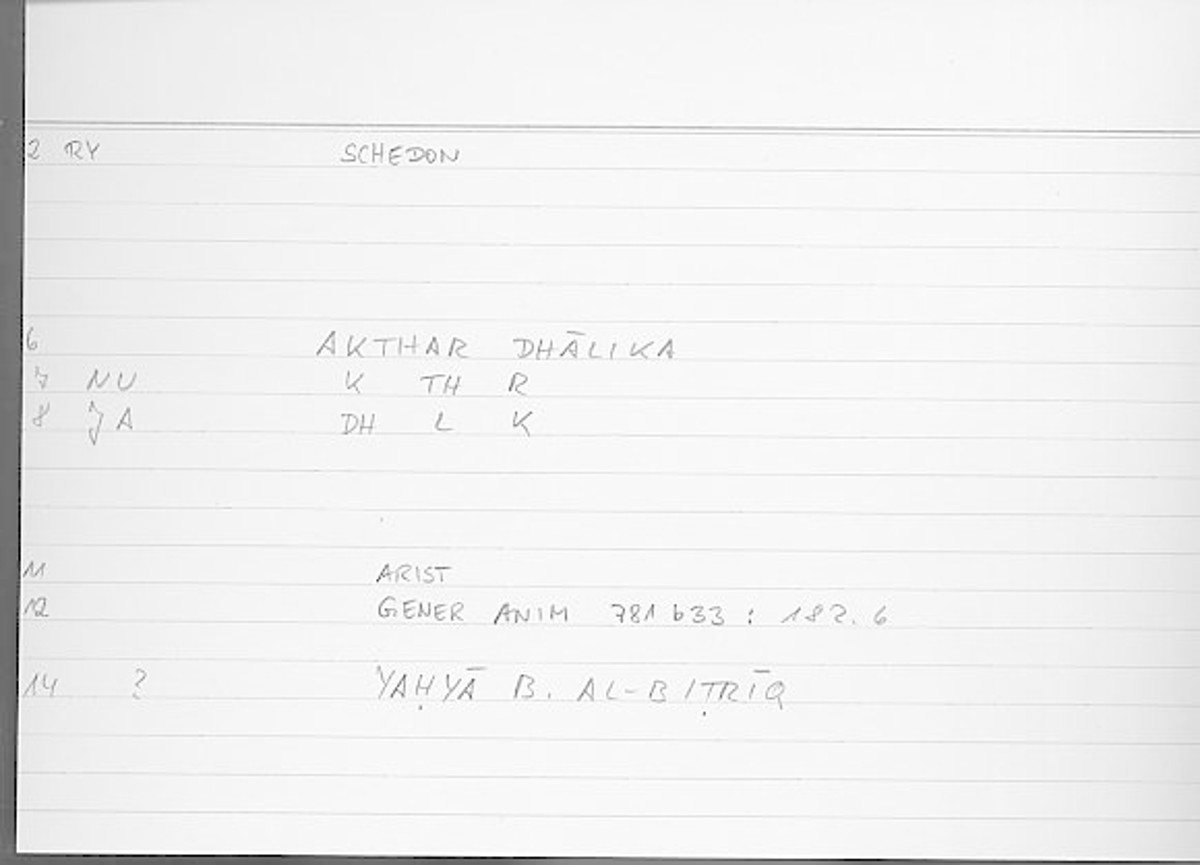 2 RY SCHEDON
6 AKTHAR DHĀLIKA
7 NU K TH R
8 JA DH L K
11 ARIST
12 GENER ANIM 781 b33 : 182.6
14 ? YAḤYĀ B. AL-BIṬRĪQ